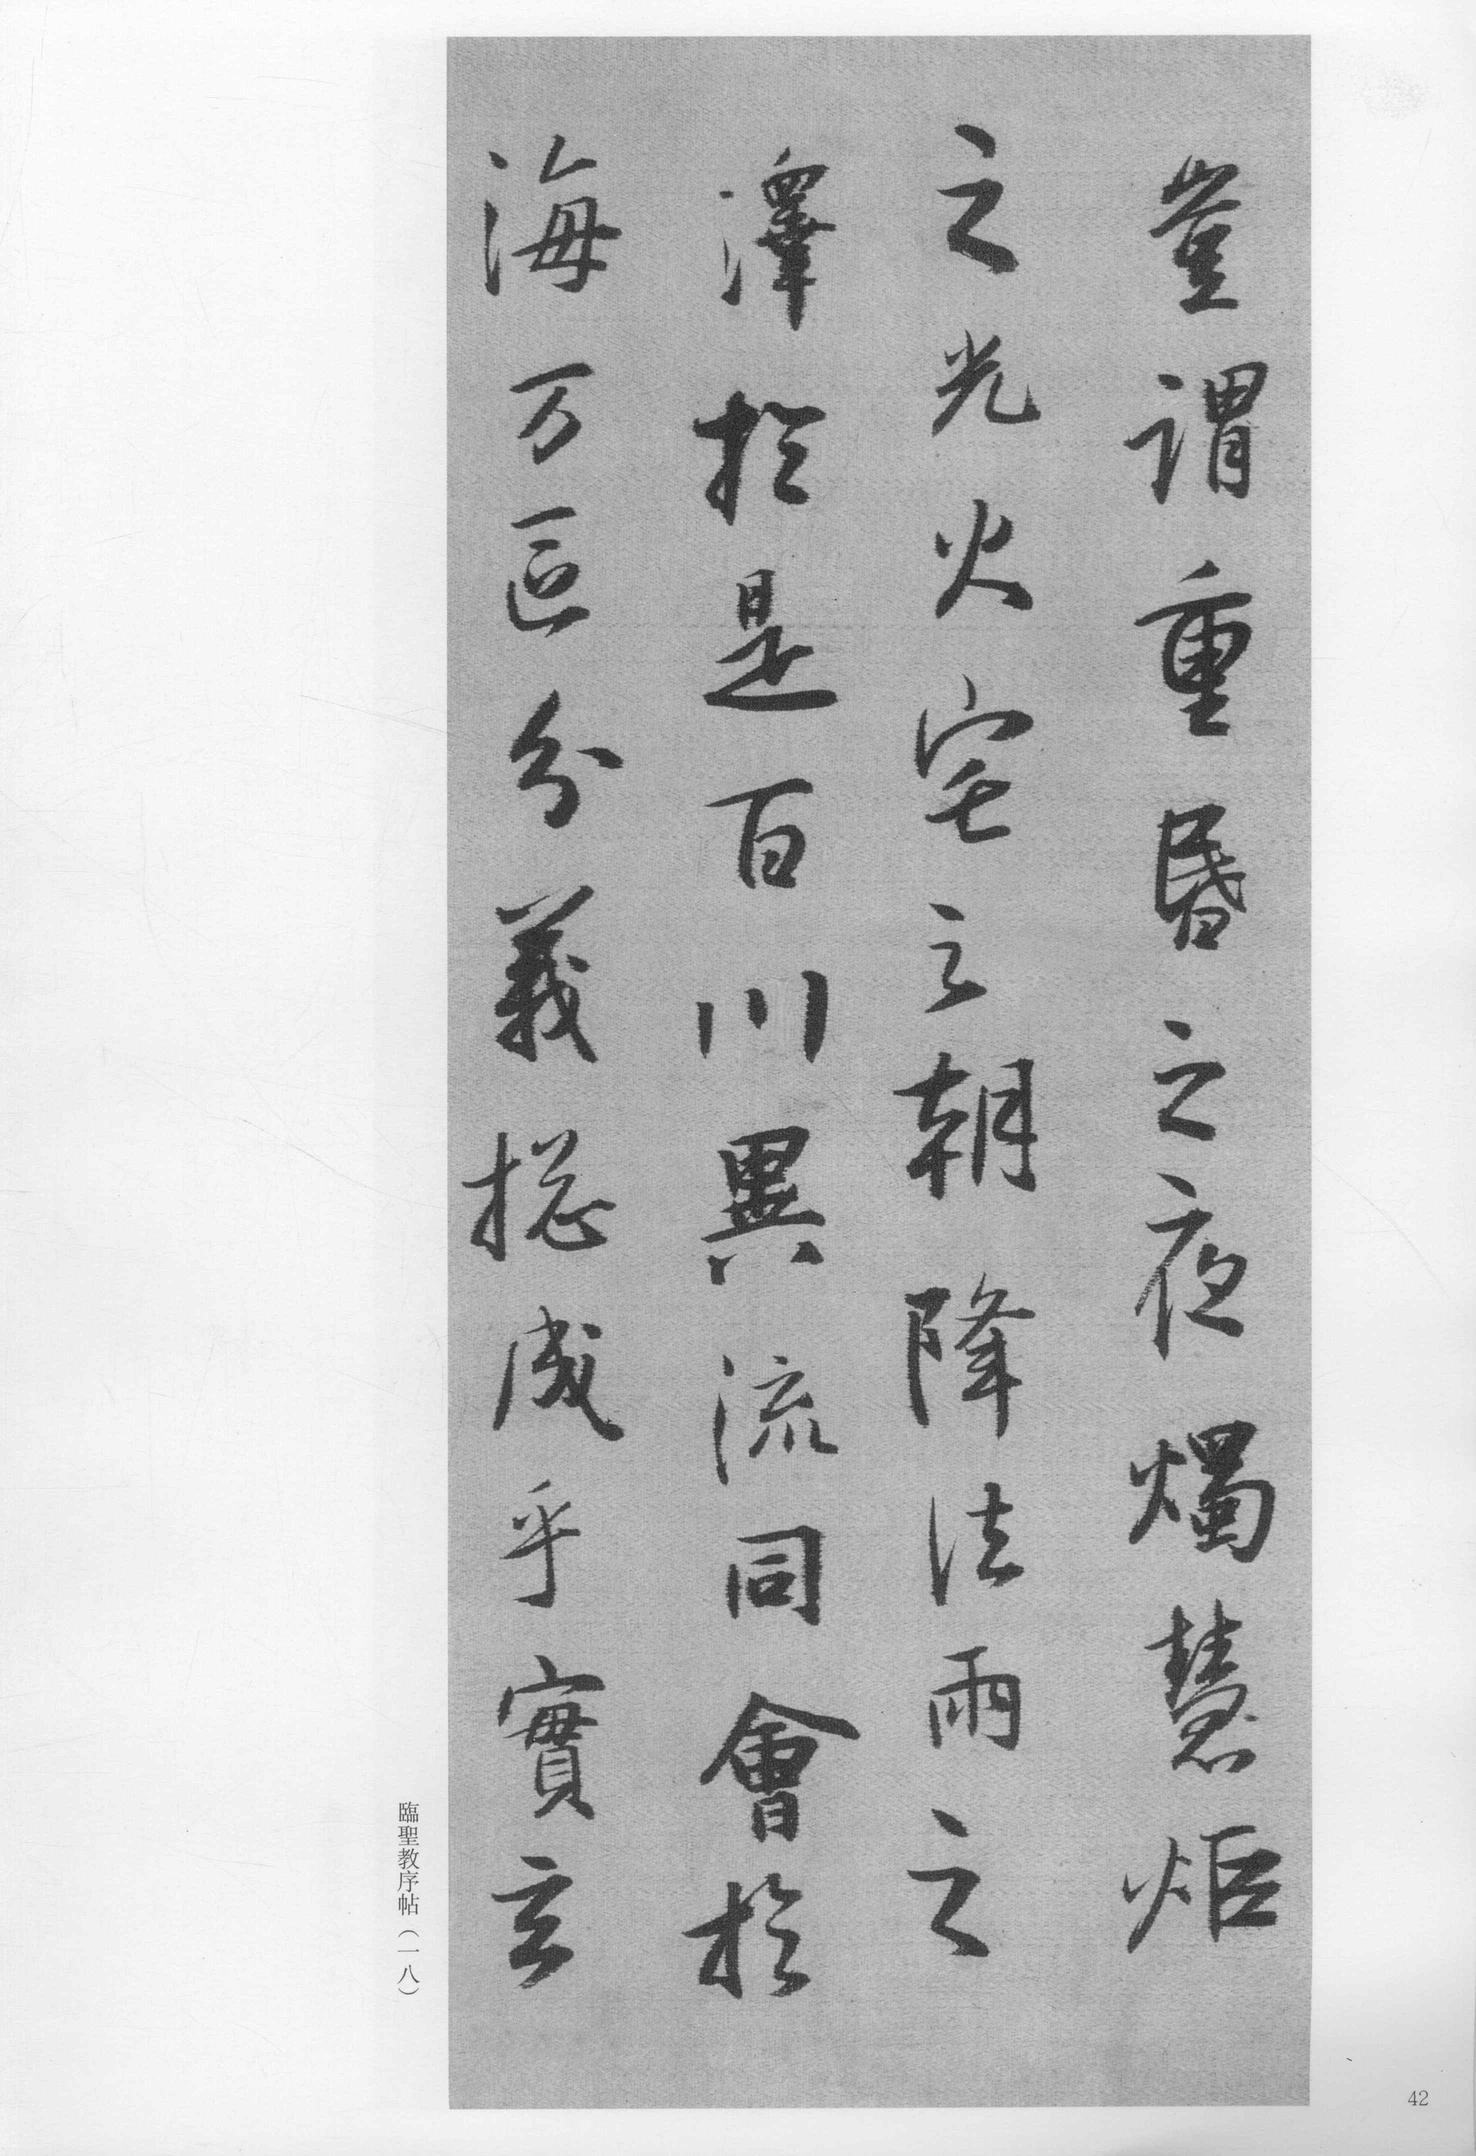 豈謂重昏之夜燭慧炬
之光火宅之朝降法雨之
澤於是百川異流同會於
海万區分義揔成乎實玄
臨聖教序帖（一八）
42